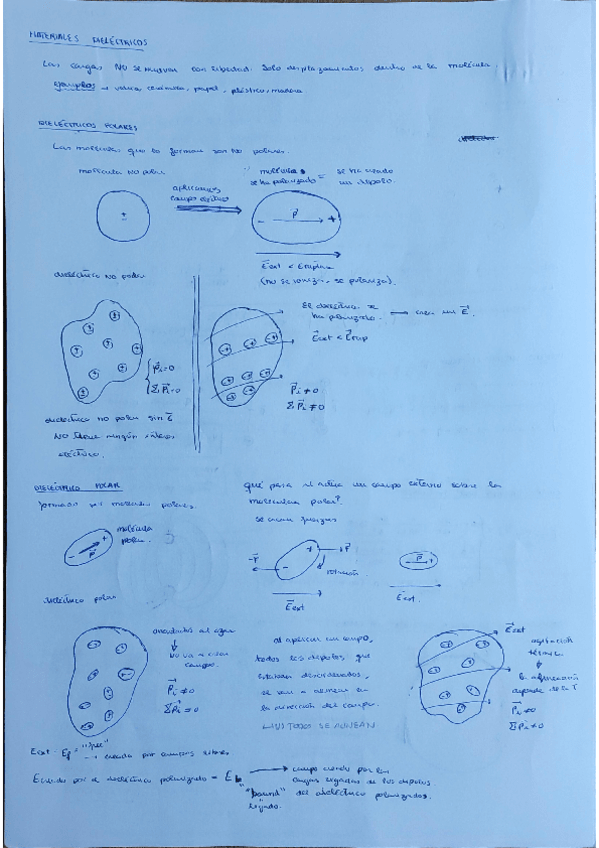 MATERIALES DIELÉCTRICOS
Las cargas NO se mueven con libertad. Solo desplazamientos dentro de la molécula.
ejemplos → vidrio, cerámica, papel, plástico, madera
DIELÉCTRICOS POLARES
Las moléculas que lo forman son NO polares.
molécula NO polar
aplicamos
campo eléctrico
molécula
se ha polarizado = se ha creado
un dipolo.
- P +
E ext < E ruptura
(no se ioniza, se polariza).
dieléctrico no polar
El dieléctrico se
ha polarizado. → crea un E.
E ext < E rup
Pi = 0
Σ Pi = 0
Pi ≠ 0
Σ Pi ≠ 0
dieléctrico no polar sin E
NO tiene ningún interés
eléctrico.
DIELÉCTRICO POLAR
formado por moléculas polares
qué pasa si actúa un campo externo sobre la
molécula polar?
se crean fuerzas
molécula
polar.
- P +
-F
+ F
rotación
E ext
E ext
dieléctrico polar
orientados al azar
no va a crear
campo.
Pi ≠ 0
Σ Pi = 0
al aplicar un campo,
todos los dipolos, que
estaban desordenados,
se van a alinear en
la dirección del campo.
NO TODOS SE ALINEAN
E ext
agitación
térmica
la alineación
depende de la T
Pi ≠ 0
Σ Pi ≠ 0
Eext = Ef = "free" → creado por cargas libres
E creado por el dieléctrico polarizado = Eb → campo creado por las
cargas ligadas de los dipolos
"bound" del dieléctrico polarizados.
ligado.